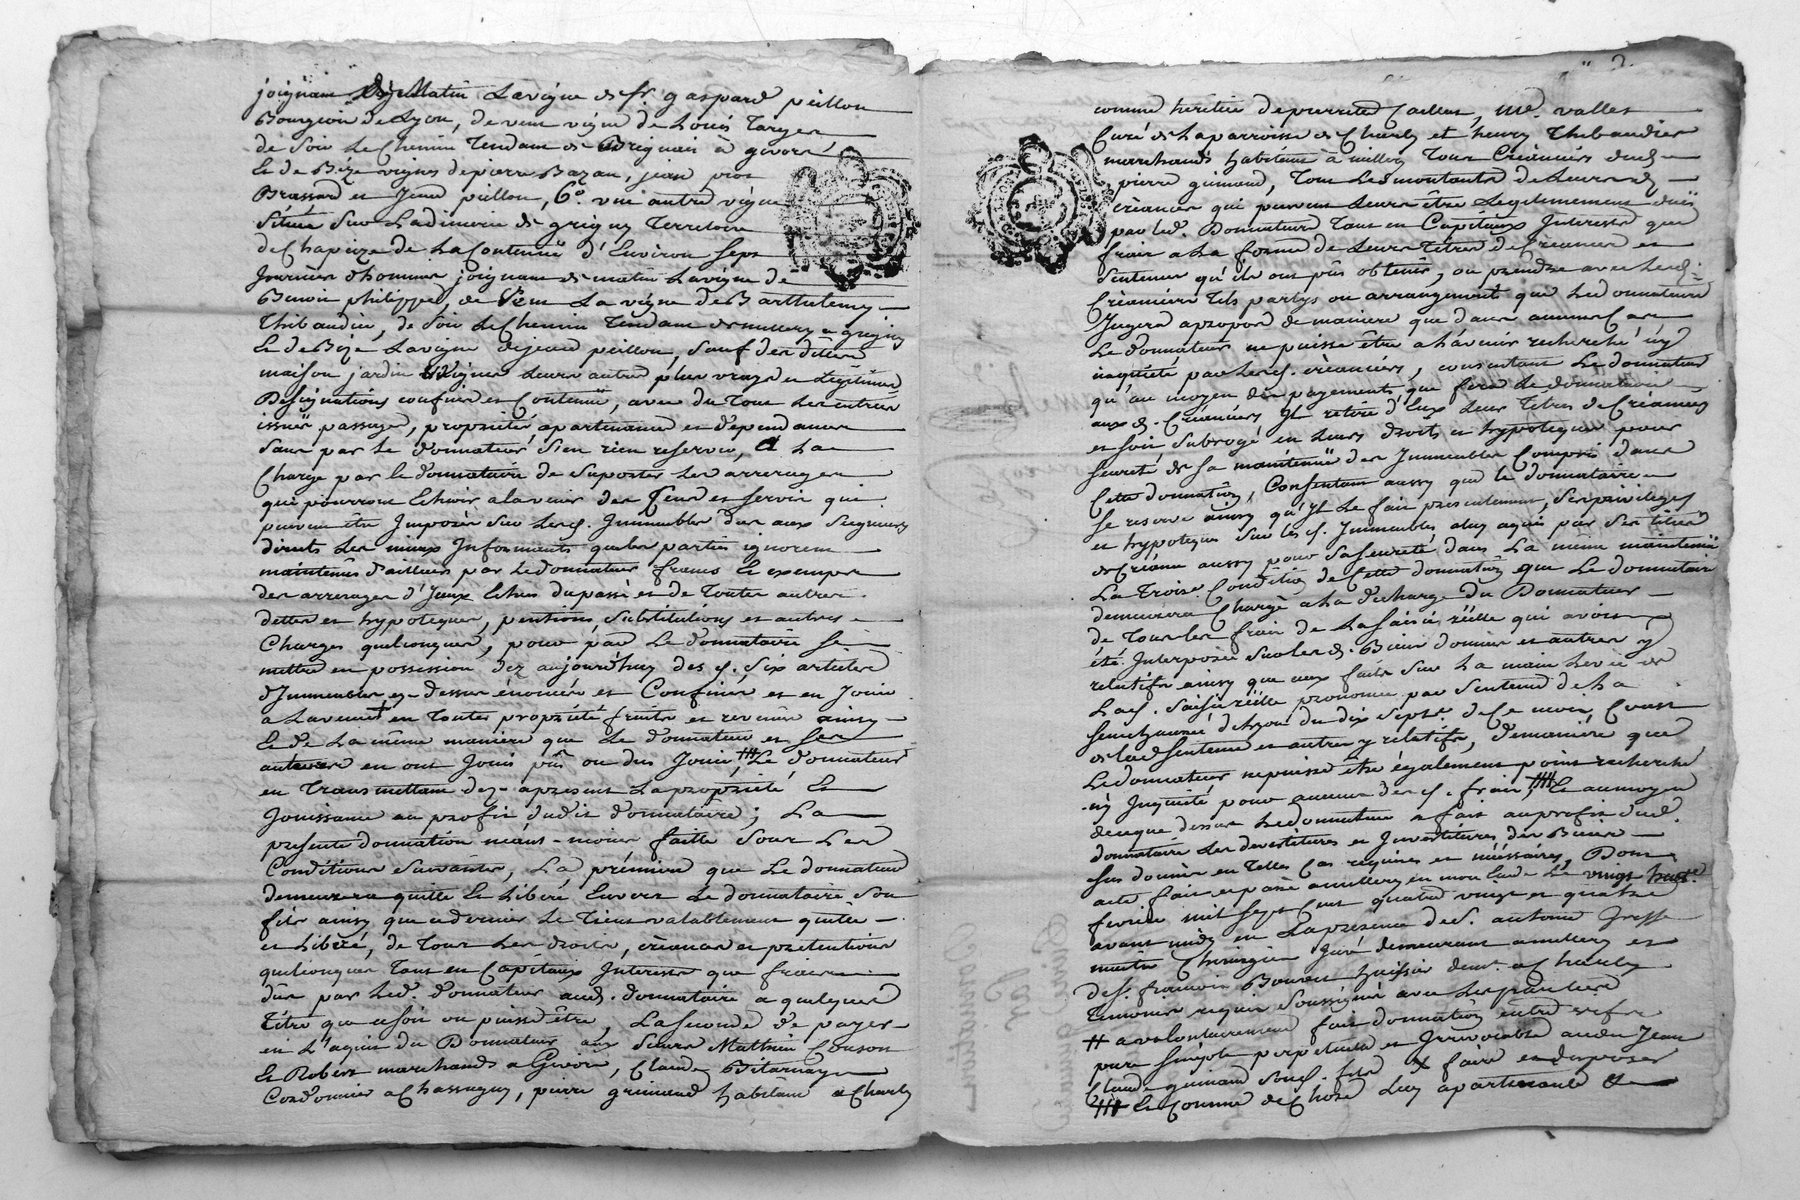 joignant de Matin La vigne de sr. gaspard peillon
Bourgeois de Lyon, de vent vigne de Louis Targe
de Soir Le Chemin Tendant de a givors
Et de Bize vignes de pierre Bazan, jean
Brassard et Jean peillon, 6°. une autre vigne
Située Sur La dimerie de grigny Territoire
de Chapize de La Contenue d'Environ Sept
Journées d'hommes joignant de matin La vigne de
Benoit philippe, de Vent La vigne de Barthelemy
Thibaudier, de Soir Le Chemin Tendant de millery a grigny
Et de Bize La vigne de jean peillon, Sauf des dittes
maison jardin & vignes Leurs autres plus vrayes et Légitimes
Désignations confins et Contenüe, avec du Tout Les entrées
issües passages, propriétés apartenances et dépendances
Sans par Le donnateur S'en rien reserver, A La
Charge par le donnataire de Suporter Les arrerages
qui pourront Echoir a l'avenir des Cens et servis qui
peuvent être Imposés Sur Lesd. Immeubles dus aux Seigneurs
directs Les mieux Informants que les parties ignorent
maintenus d'ailleurs par Le donnateur francs Et exempts
des arrerages d'Iceux Echus du passé et de Toutes autres
dettes et hypoteques, pentions Substitutions et autres
Charges quelconques, pour par Le donnataire Se
mettre en possession dez aujourd'huy des d. Six articles
d'Immeubles cy-dessus énoncés et Confinés et en Jouir
a L'avenir en Toutes propriété fruits et revenus ainsy
Et de La même maniere que Le donnateur et Ses
auteurs en ont Joüi pû ou dus Joüir, Le donnateur
en Transmettant dez-apresent La propriété Et
Joüissance au profit dudit donnataire; La
presente donnation néant-moins faitte Sous Les
Conditions Suivantes, La première que Le donnateur
demeurera quitte Et Libéré Envers Le donnataire Son
fils ainsy que ce dernier Le Tient valablement quitte
et Libéré, de Tous Les droits, créances et prétentions
quelconques Tant en Capitaux Interests que frais
dûs par Led. donnateur aud. donnataire a quelques
Titre que ce soit ou puisse être, La Seconde de payer
en L'aquit du Donnateur aux Sieurs Mathieu
Et Robert marchands a Givors, Claude
Cordonnier a Chassagny, pierre guimand habitant a Charly
comme héritier de pierrette Caillat, Mre. vallet
Curé de La parroisse de Charly et henry Thibaudier
marchands habitant a millery Tous Créanciers dud.
pierre guinand, Tous Les montants de Leurs d.
créances qui peuvent Leurs être Legitimement dües
par led. Donnateur Tant en Capitaux Interests que
frais a La forme de Leurs Titres de Creances et
Sentences qu'ils ont pûs obtenir, ou prendre avec Lesd.
Créanciers Tels partys ou arrangements que Le donnataire
Jugera aproposd de maniere que dans aucuns Cas
Le donnateur ne puisse être a L'avenir recherché ny
inquiété par Lesd. créanciers, consentant Le donnateur
qu'au moyen des payements que fera Le donnataire
aux d. Créanciers Il retire d'Eux Leurs Titres de Créances
et soit Subrogé en Leurs droits et hypoteques pour
seureté de Sa maintenüe des Immeubles Compris dans
Cette donnation, Consentant aussy que le donnataire
Se reserve ainsy qu'il Le fait presentement, Ses privileges
et hypoteques Sur les d. Immeubles a luy aquis par Ses titres
de Créance aussy pour Sa Seureté dans La même maintenüe
La Troise. Condition de Cette donnation que Le donnataire
demeurera Chargé a La décharge du Donnateur
de Tous les frais de La Saisie réelle qui avoit
été Interposée Sur Les d. Biens donnés et autres y
relatifs ainsy que ceux faits Sur La main Levée de
La d. Saisie réelle prononcée par Sentence de La
Senechaussée de Lyon du dix Sept de Ce mois, Coust
de lad Sentence et autres y relatifs, demaniere que
Le donnateur ne puisse être également point recherché
ny Inquiété pour aucuns des d. frais, Et au moyen
de ce que dessus Le donnateur a fait au profit dud.
donnataire Les devestitures et Investitures des Biens
Sus donnés en Telles Cas requises et nécessaires, Dont
acte fait et passé a millery en mon Etude Le vingt huit
fevrier mil Sept Cent quatre vingt et quatre
avant midy en La presence de S. antoine
maitre Chirurgien Juré demeurant a millery et
de S. françois Bonnet huissier demt. a Charly
Témoins requis Soussignés avec Les parties
# a volontairement fait donnation entre vifs
pure Simple perpetuelle et Irrevocable audit Jean
Claude guinand Sond. fils X faire et disposer
## Et Comme de Chose Luy apartenante &